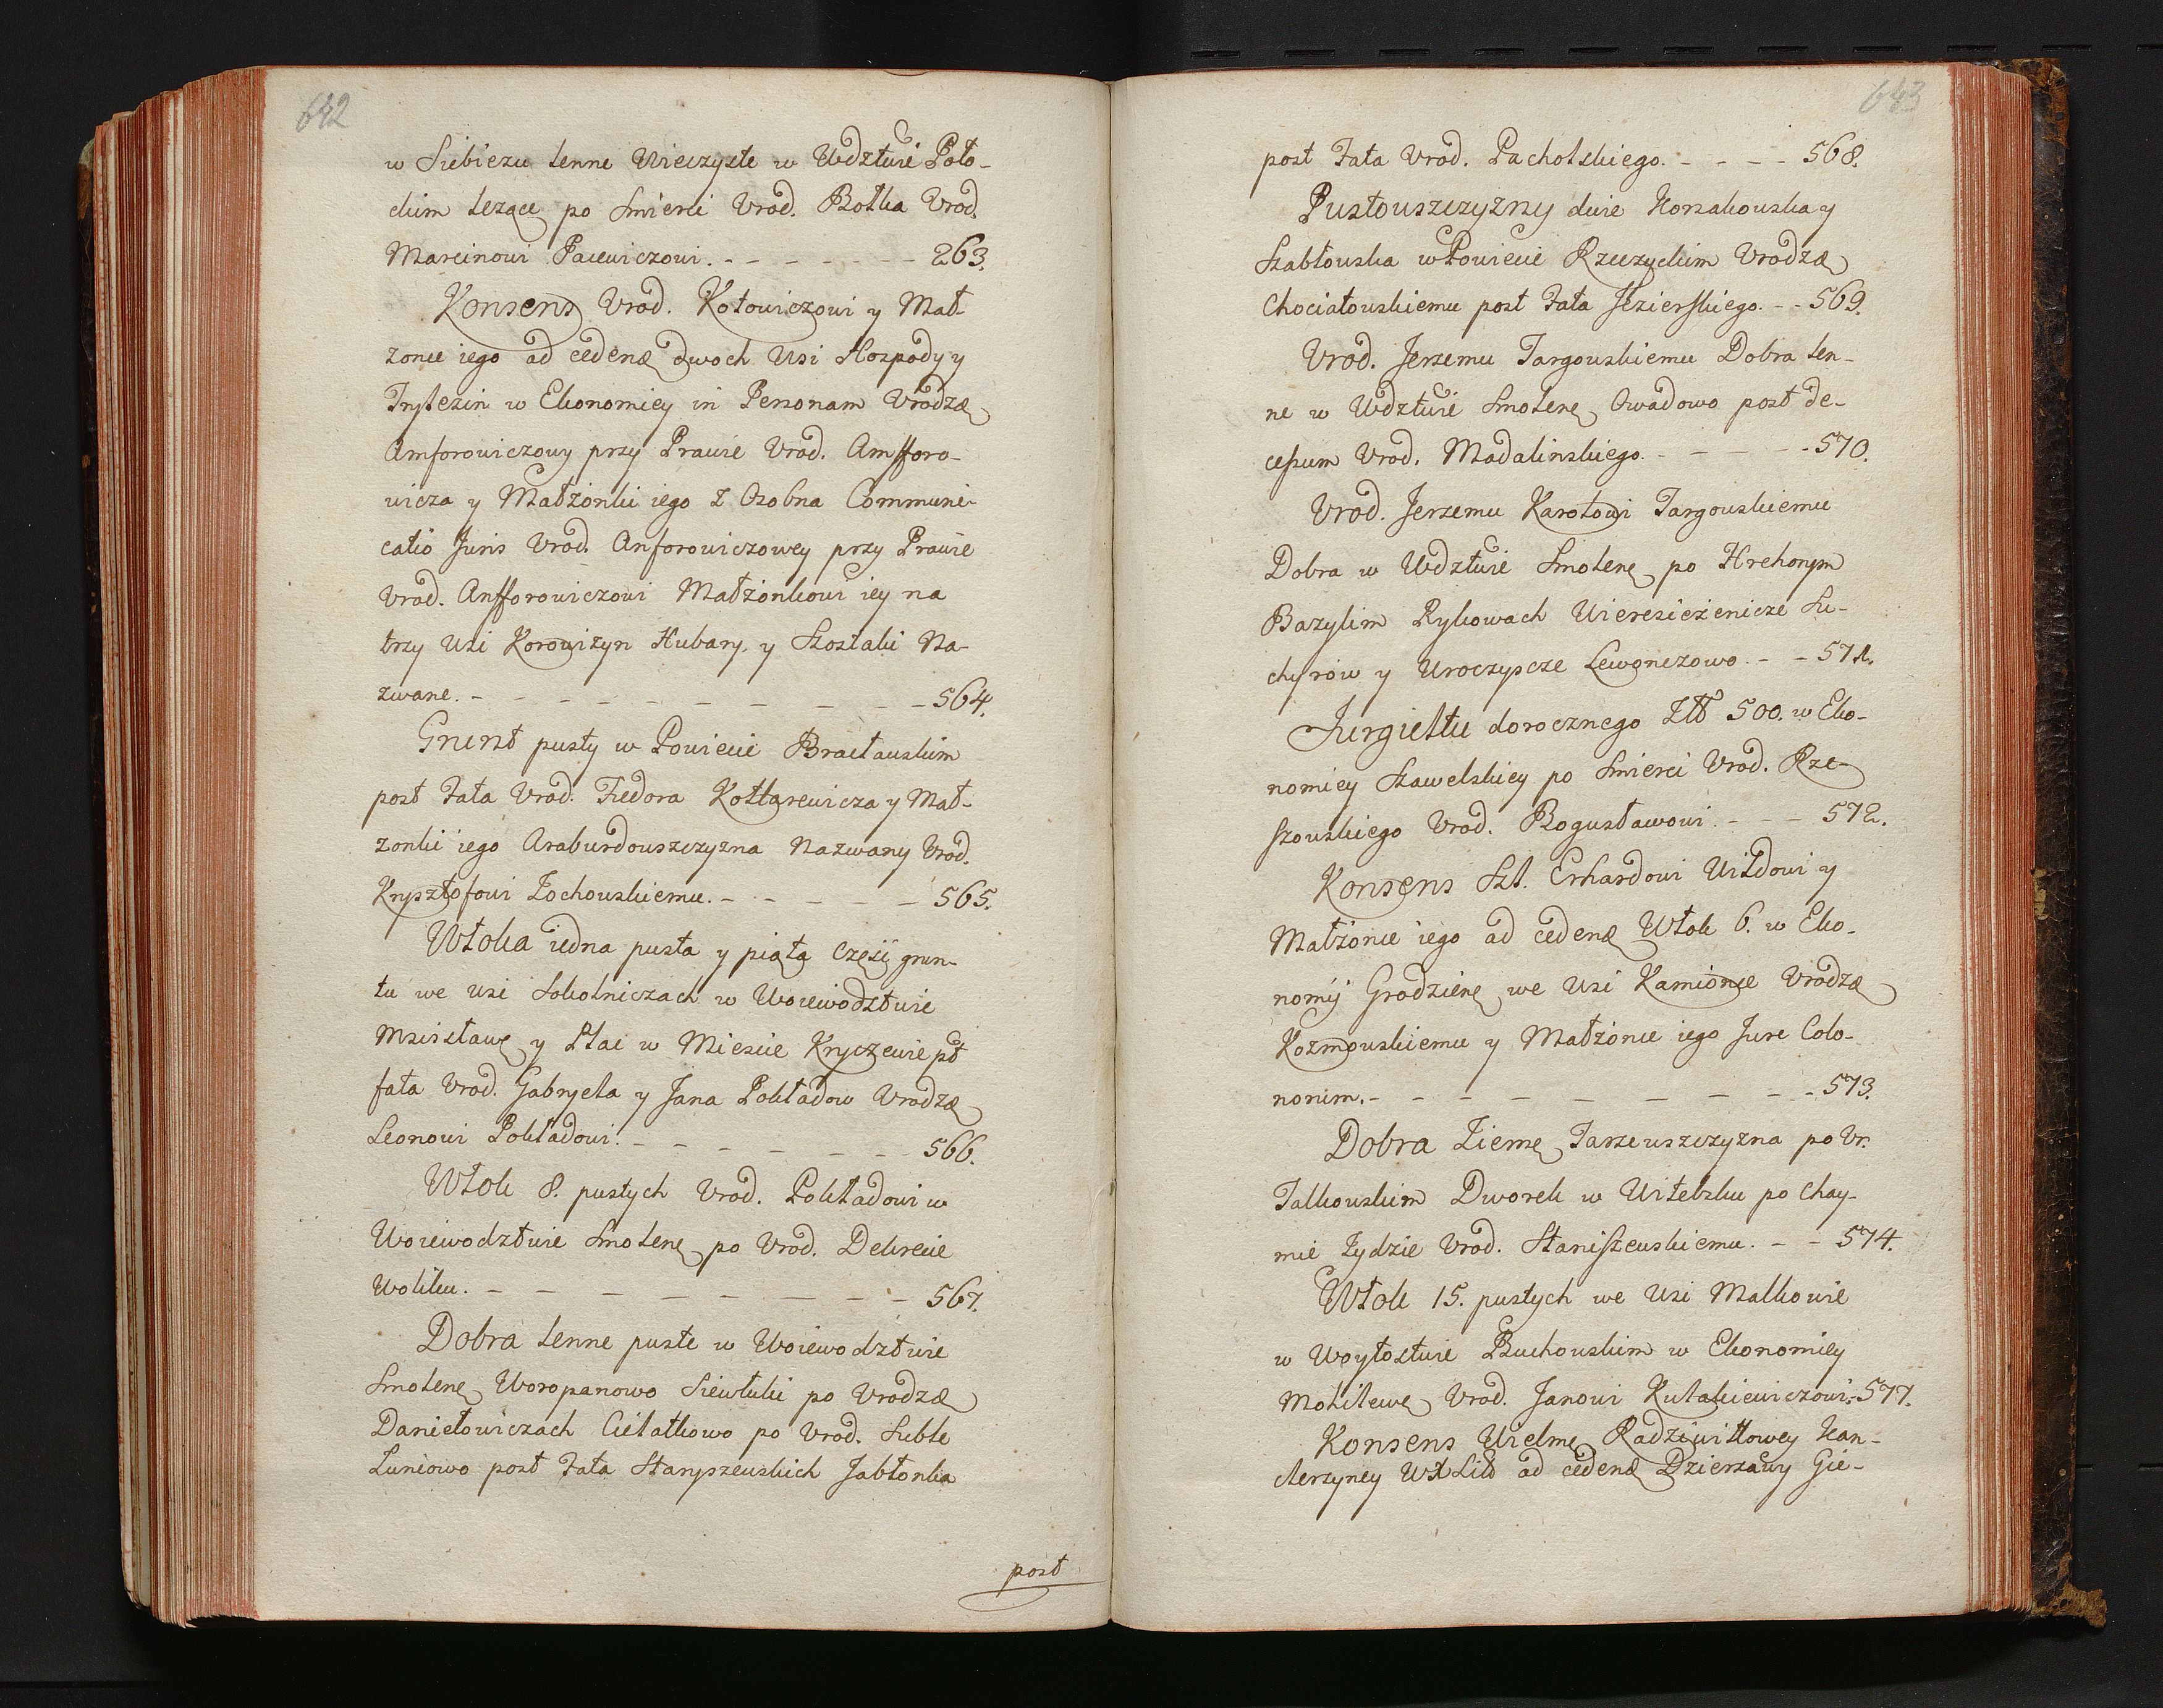 642
w Siebieżu lenne Wieczyste w Wdztwie Poło-
ckim leżące po Smierci Urod. Botka Urod.
Marcinowi Pacewiczowi. - - - - - - 263.
Konsens Urod. Kotowiczowi y Mał-
żonce iego ad cedend dwoch Wsi Hospody y
Trysteżin w Ekonomiey in Personam Urodze
Amforowiczowy przy Prawie Urod. Amfforo-
wicza y Małżonki iego z Osobna Communi-
catio Juris Urod. Anforowiczowey przy Prawie
Urod. Anfforowiczowi Małżonkowi iey na
trzy Wsi Korowiżyn Hubary, y Szostaki Na-
zwane. - - - - - - - - - 564.
Grunt pusty w Powiecie Bracławskim
post Fata Urod. Fiedora Kotlarewicza y Mał-
żonki iego Araburdowszczyzna Nazwany Urod.
Krysztofowi Żochowskiemu. - - - - - 565.
Włoka iedna pusta y piąta Część grun-
tu we Wsi Sokolniczach w Woiewodztwie
Mscisławe y Plac w Miescie Kryczewie pst
fata Urod. Gabryela y Jana Pokładow Urodze
Leonowi Pokładowi. - - - - - - 566.
Włok 8. pustych Urod. Pokładowi w
Woiewodztwie Smolene po Urod. Dekrecie
Wolku. - - - - - - - - 567.
Dobra lenne puste w Woiewodztwie
Smolene Woropanowo Siewluki po Urodze
Daniełowiczach Cielatkowo po Urod. Suble
Luniowo post Fata Staryszewskich Jabłonka
post
643
post Fata Urod. Pacholskiego. - - - - 568.
Pustouszczyzny dwie Korsakowska y
Szabłowska w Powiecie Rzeczyckim Urodze
Chociatowskiemu post Fata Jezierskiego. - - 569.
Urod. Jerzemu Targowskiemu Dobra len-
ne w Wdztwie Smolene Owadowo post de-
cessum Urod. Madalinskiego. - - - - 570.
Urod. Jerzemu Karolowi Targowskiemu
Dobra w Wdztwie Smolene po Hrehorym
Bazylim Rykowach Wieresieżenicze Su-
chyrow y Uroczyscze Lewonczowo. - - 571.
Jurgieltu dorocznego Złł 500. w Eko-
nomiey Szawelskiey po Smierci Urod. Rze-
szowskiego Urod. Bogusławowi. - - - 572.
Konsens Szl. Erhardowi Wildowi y
Małżonce iego ad cedend Włok 6. w Eko-
nomij Grodziene we Wsi Kamionce Urodze
Kozmowskiemu y Małżonce iego Jure Colo-
norum. - - - - - - - - 573.
Dobra Zieme Tarzewszczyzna po Ur.
Talkowskim Dworek w Witebsku po Chay-
mie Żydzie Urod. Staniszewskiemu. - - 574.
Włok 15. pustych we Wsi Malkowie
w Woytostwie Buchowskim w Ekonomiey
Mohilewe Urod. Janowi Kulakiewiczowi. 577.
Konsens Wielme Radziwiłłowey Kan-
clerzyney WXLitt ad cedend Dzierżawy Gie-